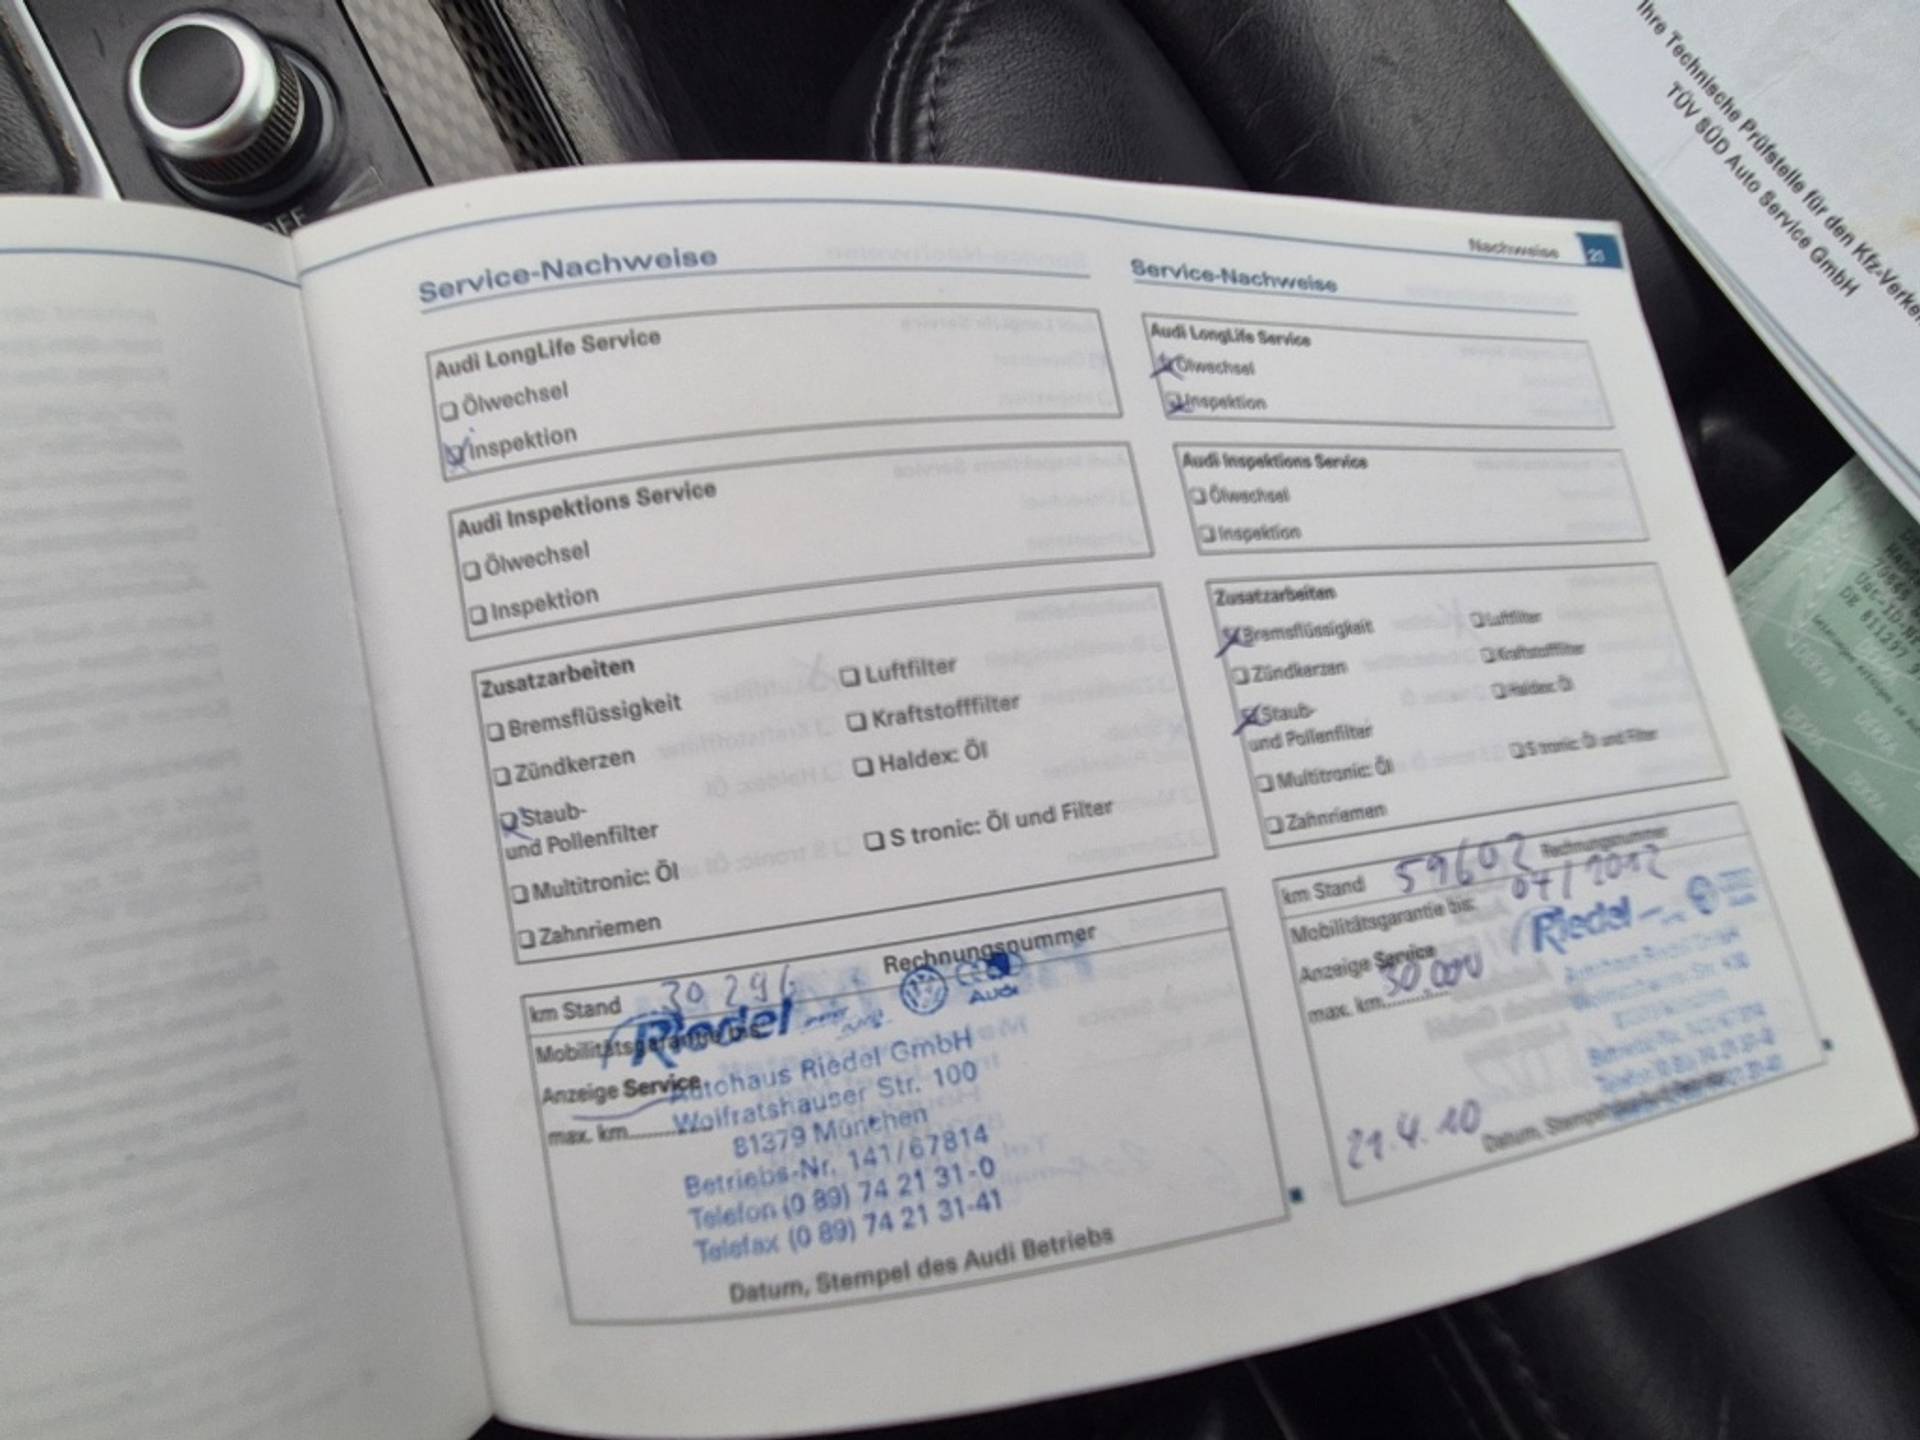 OFF
Nachweise
Service-Nachweise
Audi LongLife Service
Ölwechsel
Inspektion
Audi Inspektions Service
Ölwechsel
Inspektion
Zusatzarbeiten
Bremsflüssigkeit
Luftfilter
Zündkerzen
Kraftstofffilter
Staub-
und Pollenfilter
Haldex: Öl
Multitronic: Öl
S tronic: Öl und Filter
Zahnriemen
km Stand 30 296 Rechnungsnummer
Mobilitätsgarantie bis:
Riedel
Audi
Anzeige Service
max. km
Autohaus Riedel GmbH
Wolfratshauser Str. 100
81379 München
Betriebs-Nr. 141/67814
Telefon (0 89) 74 21 31-0
Telefax (0 89) 74 21 31-41
Datum, Stempel des Audi Betriebs
Service-Nachweise
Audi LongLife Service
Ölwechsel
Inspektion
Audi Inspektions Service
Ölwechsel
Inspektion
Zusatzarbeiten
Bremsflüssigkeit
Luftfilter
Zündkerzen
Kraftstofffilter
Staub-
und Pollenfilter
Haldex: Öl
Multitronic: Öl
S tronic: Öl und Filter
Zahnriemen
km Stand 59602 Rechnungsnummer
Mobilitätsgarantie bis: 04/2012
Riedel
Anzeige Service
max. km 30.000
21.4.10
Datum, Stempel
Ihre Technische Prüfstelle für den Kfz-Verkehr
TÜV SÜD Auto Service GmbH
DEKRA